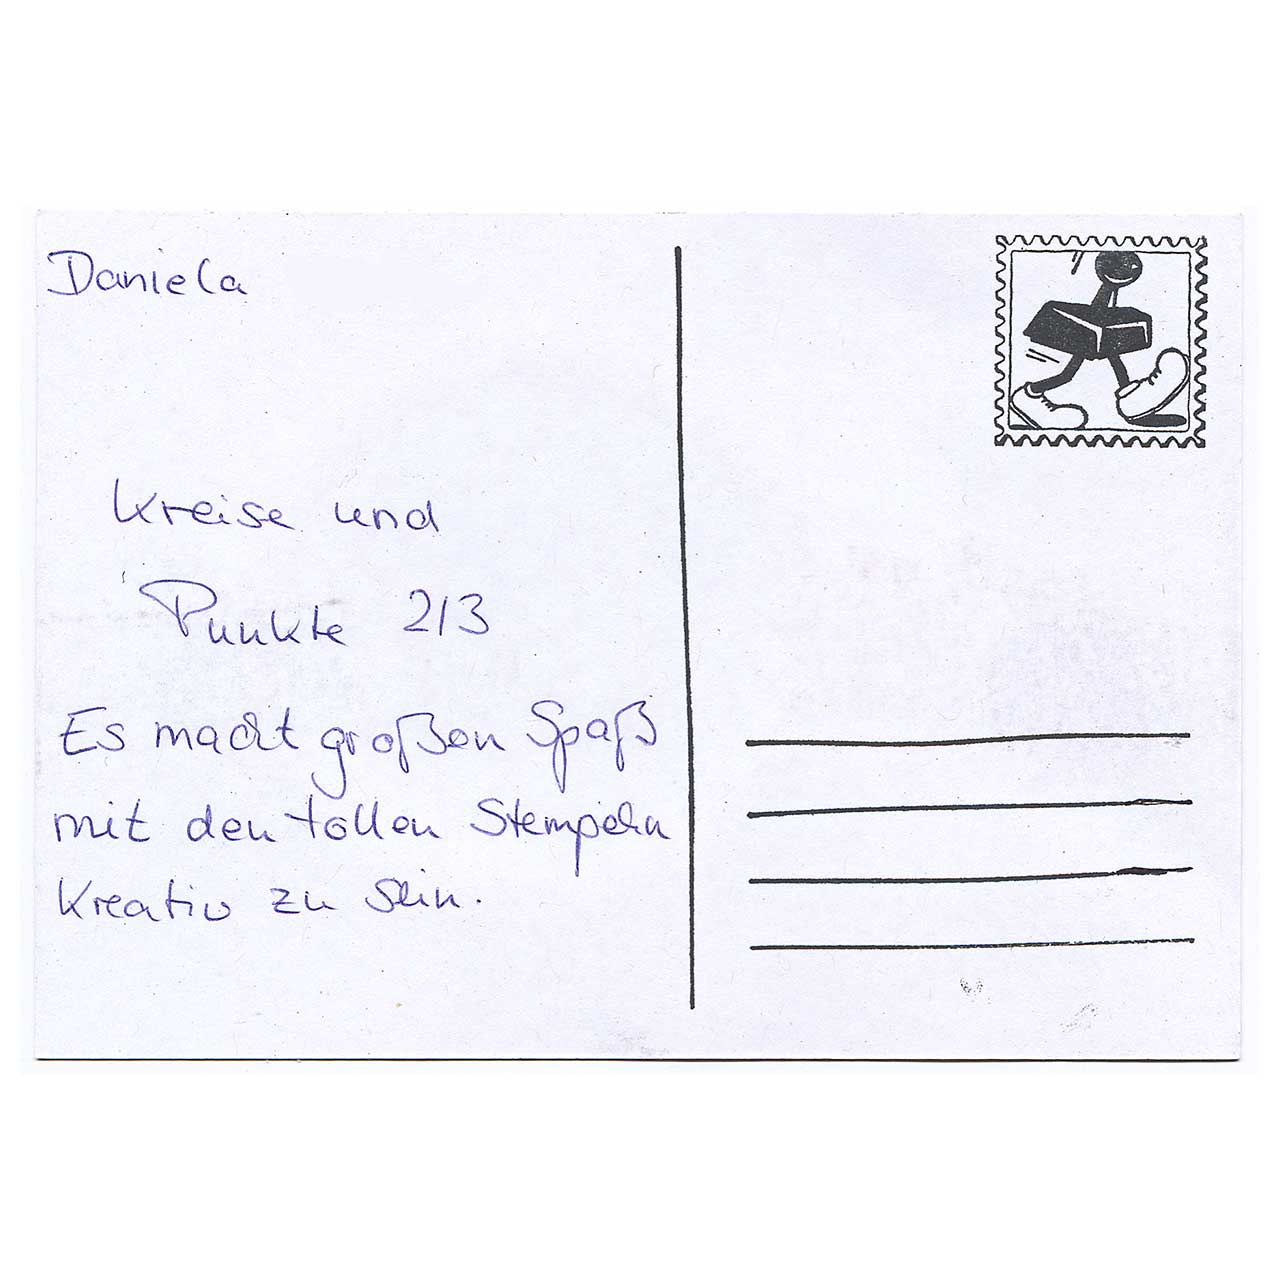 Daniela
Kreise und
Punkte 2/3
Es macht großen Spaß
mit den tollen Stempeln
kreativ zu sein.